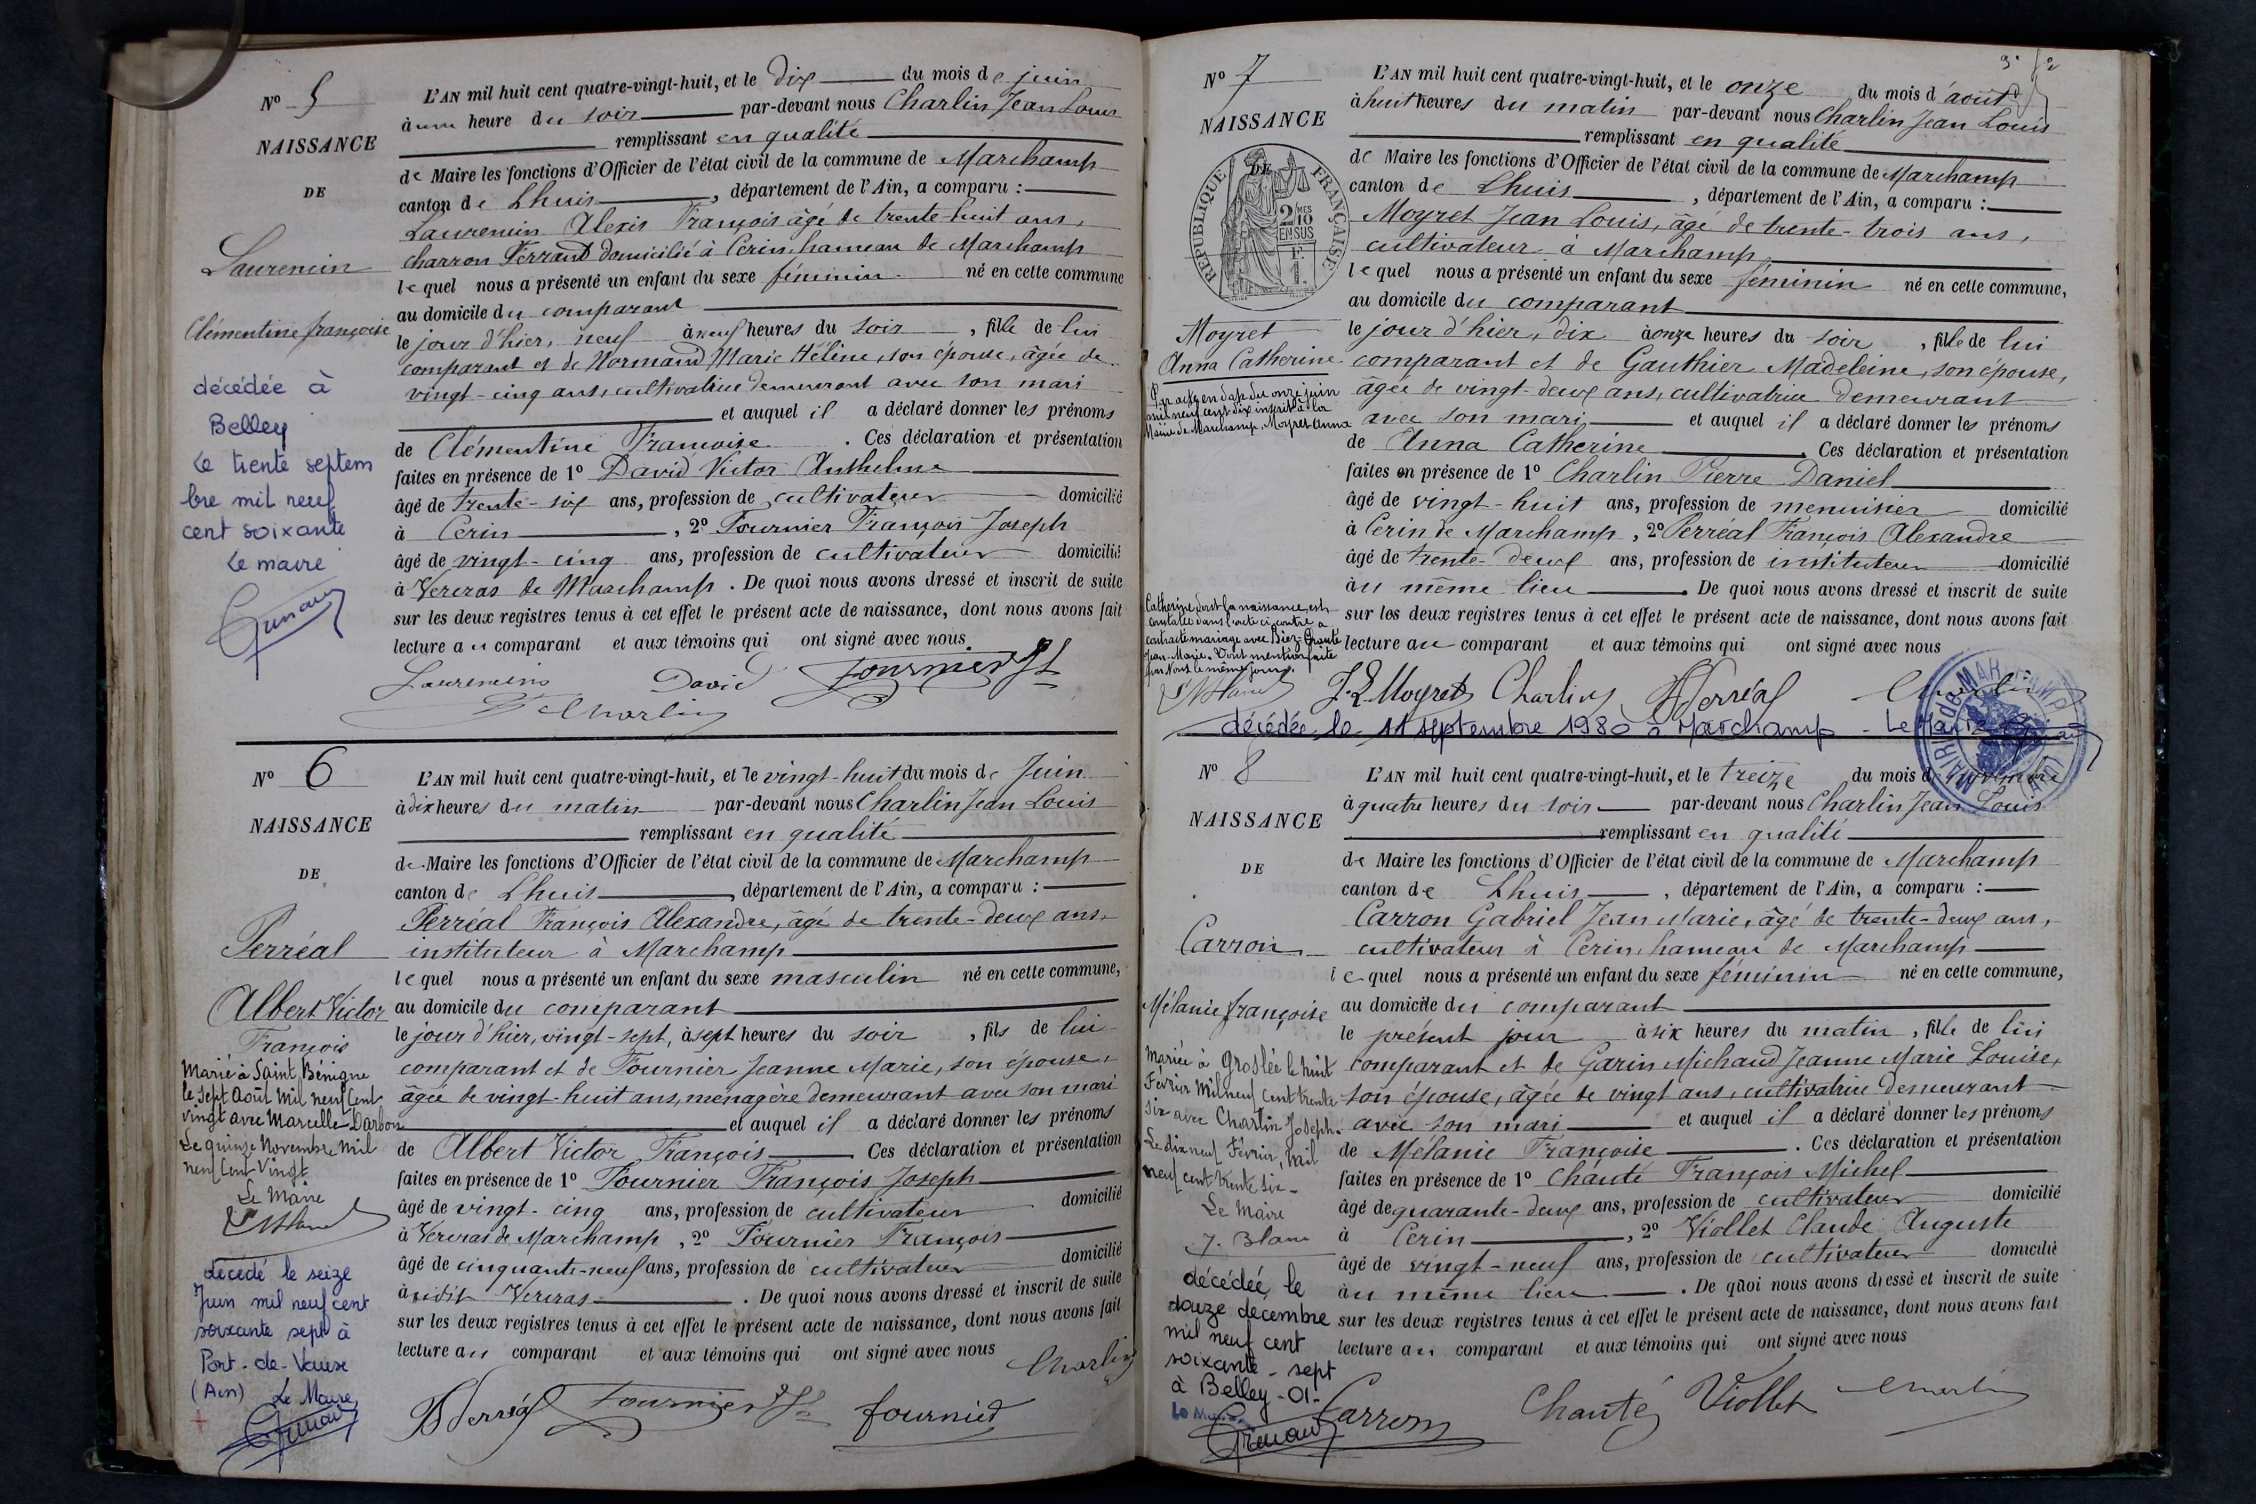 Nº 5
NAISSANCE
DE
Laurencin
Clémentine françoise
décédée à
Belley
Le trente septem
bre mil neuf
cent soixante
Le maire
L'AN mil huit cent quatre-vingt-huit, et le dix du mois de juin
à une heure du soir par-devant nous Charlin Jean Louis
remplissant en qualité
de Maire les fonctions d'Officier de l'état civil de la commune de Marchamp
canton de Lhuis, département de l'Ain, a comparu :
Laurencin Alexis François âgé de trente-huit ans,
charron Ferrand domicilié à Cerin, hameau de Marchamp
lequel nous a présenté un enfant du sexe féminin né en cette commune
au domicile du comparant
le jour d'hier, neuf à neuf heures du soir, fille de lui
comparant et de Normand Marie Hélène, son épouse, âgée de
vingt-cinq ans, cultivatrice demeurant avec son mari
et auquel il a déclaré donner les prénoms
de Clémentine Françoise. Ces déclaration et présentation
faites en présence de 1º David Victor Anthelme
âgé de trente-six ans, profession de cultivateur domicilié
à Cerin, 2º Fournier François Joseph
âgé de vingt-cinq ans, profession de cultivateur domicilié
à Vereras de Marchamp. De quoi nous avons dressé et inscrit de suite
sur les deux registres tenus à cet effet le présent acte de naissance, dont nous avons fait
lecture au comparant et aux témoins qui ont signé avec nous.
Laurencin David Fournier
Charlin
Nº 6
NAISSANCE
DE
Perréal
Albert Victor
François
Marié à Saint Bénigne
le sept Août mil neuf cent
vingt avec Marcelle Darbon
Le quinze Novembre mil
neuf cent vingt
Le Maire
décédé le seize
Juin mil neuf cent
soixante sept à
Pont-de-Vaux
(Ain) Le Maire
L'AN mil huit cent quatre-vingt-huit, et le vingt-huit du mois de Juin
à dix heures du matin par-devant nous Charlin Jean Louis
remplissant en qualité
de Maire les fonctions d'Officier de l'état civil de la commune de Marchamp
canton de Lhuis, département de l'Ain, a comparu :
Perréal François Alexandre, âgé de trente-deux ans,
instituteur à Marchamp
lequel nous a présenté un enfant du sexe masculin né en cette commune,
au domicile du comparant
le jour d'hier, vingt-sept, à sept heures du soir, fils de lui
comparant et de Fournier Jeanne Marie, son épouse,
âgée de vingt-huit ans, ménagère demeurant avec son mari
et auquel il a déclaré donner les prénoms
de Albert Victor François Ces déclaration et présentation
faites en présence de 1º Fournier François Joseph
âgé de vingt-cinq ans, profession de cultivateur domicilié
à Vereras de Marchamp, 2º Fournier François
âgé de cinquante-neuf ans, profession de cultivateur domicilié
à udit Vereras. De quoi nous avons dressé et inscrit de suite
sur les deux registres tenus à cet effet le présent acte de naissance, dont nous avons fait
lecture au comparant et aux témoins qui ont signé avec nous
Charlin
Perréal Fournier fournier
Nº 7
NAISSANCE
DE
RÉPUBLIQUE FRANÇAISE
2/10
EN SUS
Moyret
Anna Catherine
Par acte en date du onze juin
mil neuf cent dix inscrit à la
Mairie de Marchamp, Moyret Anna
Catherine dont la naissance est
constatée dans l'acte ci-contre a
contracté mariage avec Biez-Chanté
Jean-Marie. Dont mention faite
par Nous le même jour.
L'AN mil huit cent quatre-vingt-huit, et le onze du mois d'août
à huit heures du matin par-devant nous Charlin Jean Louis
remplissant en qualité
de Maire les fonctions d'Officier de l'état civil de la commune de Marchamp
canton de Lhuis, département de l'Ain, a comparu :
Moyret Jean Louis, âgé de trente-trois ans,
cultivateur à Marchamp,
lequel nous a présenté un enfant du sexe féminin né en cette commune,
au domicile du comparant
le jour d'hier, dix à onze heures du soir, fille de lui
comparant et de Gauthier Madeleine, son épouse,
âgée de vingt-deux ans, cultivatrice demeurant
avec son mari et auquel il a déclaré donner les prénoms
de Anna Catherine. Ces déclaration et présentation
faites en présence de 1º Charlin Pierre Daniel
âgé de vingt-huit ans, profession de menuisier domicilié
à Cerin de Marchamp, 2º Perréal François Alexandre
âgé de trente-deux ans, profession de instituteur domicilié
au même lieu. De quoi nous avons dressé et inscrit de suite
sur les deux registres tenus à cet effet le présent acte de naissance, dont nous avons fait
lecture au comparant et aux témoins qui ont signé avec nous
J. L. Moyret Charlin Perréal Charlin
décédée le 11 septembre 1980 à Marchamp - Le Maire
MAIRIE de MARCHAMP
Nº 8
NAISSANCE
DE
Carron
Mélanie françoise
Mariée à Groslée le huit
Février Mil neuf cent trente
six avec Charlin Joseph.
Le dix neuf Février, Mil
neuf cent trente six -
Le Maire
J. Blanc
décédée le
douze décembre
mil neuf cent
soixante-sept
à Belley-01.
Le Maire
L'AN mil huit cent quatre-vingt-huit, et le treize du mois de novembre
à quatre heures du soir par-devant nous Charlin Jean Louis
remplissant en qualité
de Maire les fonctions d'Officier de l'état civil de la commune de Marchamp
canton de Lhuis, département de l'Ain, a comparu :
Carron Gabriel Jean Marie, âgé de trente-deux ans,
cultivateur à Cerin, hameau de Marchamp
lequel nous a présenté un enfant du sexe féminin né en cette commune,
au domicile du comparant
le présent jour à six heures du matin, fille de lui
comparant et de Garin Michaud Jeanne Marie Louise,
son épouse, âgée de vingt ans, cultivatrice demeurant
avec son mari et auquel il a déclaré donner les prénoms
de Mélanie Françoise. Ces déclaration et présentation
faites en présence de 1º Chanté François Michel
âgé de quarante-deux ans, profession de cultivateur domicilié
à Cerin, 2º Viollet Claude Auguste
âgé de vingt-neuf ans, profession de cultivateur domicilié
au même lieu. De quoi nous avons dressé et inscrit de suite
sur les deux registres tenus à cet effet le présent acte de naissance, dont nous avons fait
lecture au comparant et aux témoins qui ont signé avec nous
Carron Chanté Viollet Charlin